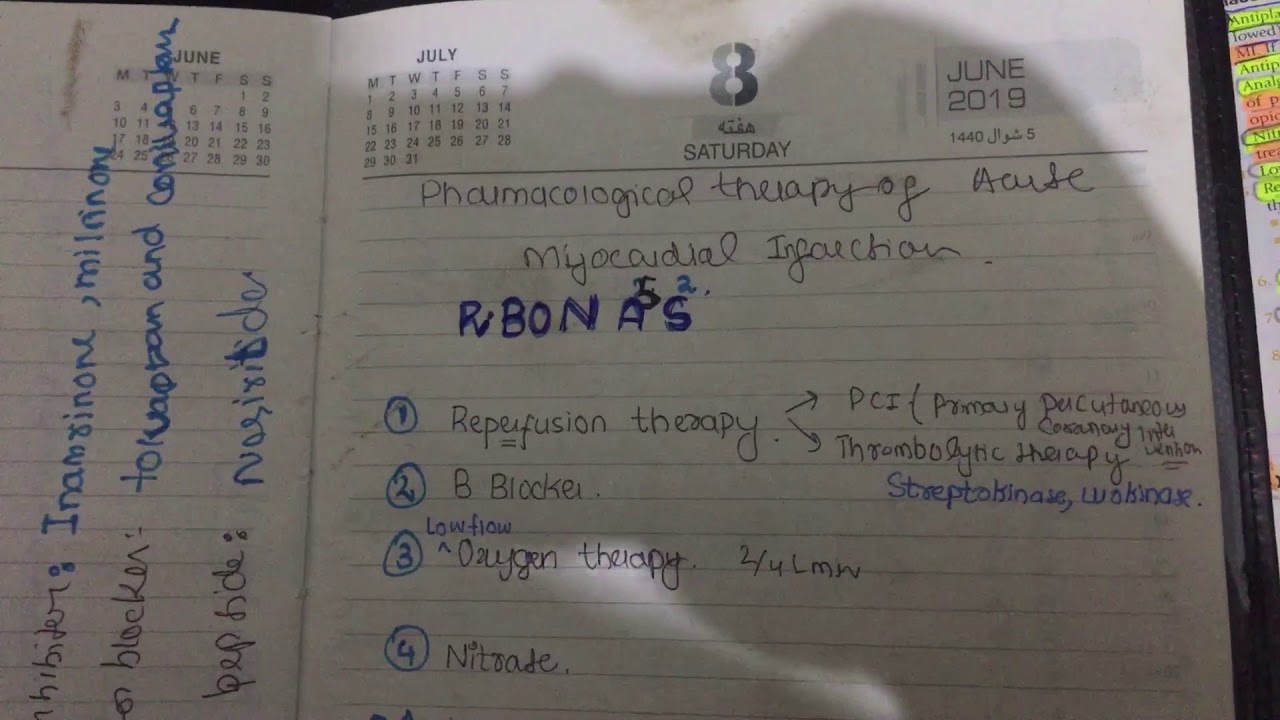 JUNE
M T W T F S S
1 2
3 4 6 7 8 9
10 11 13 14 15 16
17 18 20 21 22 23
24 25 27 28 29 30
Inhibiter: Inamrinone, milrinone
blocker:- tolvaptan and conivaptan
pepside: Nesiritide
JULY
M T W T F S S
1 2 3 4 5 6 7
8 9 10 11 12 13 14
15 16 17 18 19 20 21
22 23 24 25 26 27 28
29 30 31
8
هفته
SATURDAY
JUNE
2019
5 شوال 1440
Pharmacological therapy of Acute
Myocardial Infarction.
R BONA5S2.
1 Reperfusion therapy. → PCI (Primary percutaneous
coronary Inter
vention
→ Thrombolytic therapy
Streptokinase, urokinase.
2 B Blocker.
Low flow
3 ^Oxygen therapy. 2/4 L min
4 Nitrate.
Antipla
lowed
MI. If
Antip
Analg
of p
opio
Nit
trea
Lo
Re
th
6.